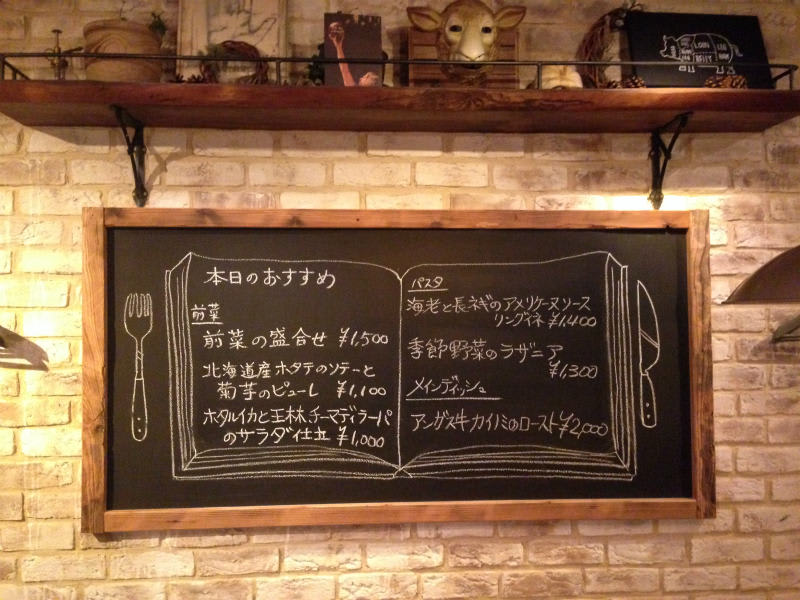 本日のおすすめ
前菜
前菜の盛合せ ¥1,500
北海道産ホタテのソテーと
菊芋のピューレ ¥1,100
ホタルイカと王林、チーマディラーパ
のサラダ仕立 ¥1,000
パスタ
海老と長ネギのアメリケーヌソース
リングイネ ¥1,400
季節野菜のラザニア
¥1,300
メインディッシュ
アンガス牛カイノミのロースト ¥2,000
LOIN
BELLY